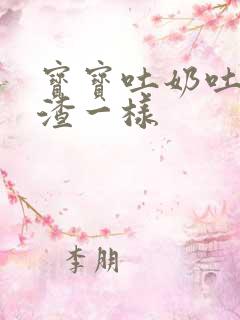 寶寶吐奶吐
渣一樣
李朋